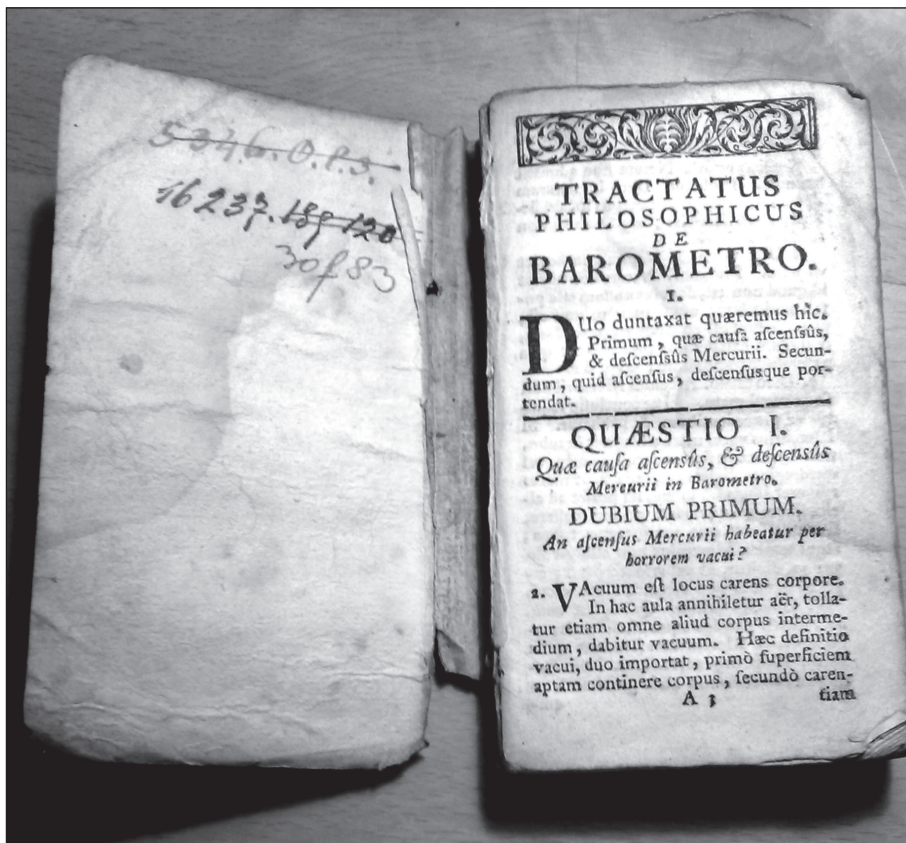 5346.O.P.S.
16237.189 120
30f83
TRACTATUS
PHILOSOPHICUS
DE
BAROMETRO.
I.
DUo duntaxat quæremus hîc.
Primum, quæ cauſa aſcenſsûs,
& deſcenſsûs Mercurii. Secun-
dum, quid aſcenſus, deſcenſusque por-
tendat.
QUÆSTIO I.
Quæ cauſa aſcensûs, & deſcensûs
Mercurii in Barometro.
DUBIUM PRIMUM.
An aſcenſus Mercurii habeatur per
horrorem vacui?
2. VAcuum eſt locus carens corpore.
In hac aula annihiletur aër, tolla-
tur etiam omne aliud corpus interme-
dium, dabitur vacuum. Hæc definitio
vacui, duo importat, primò ſuperficiem
aptam continere corpus, ſecundò caren-
A 3 tiam